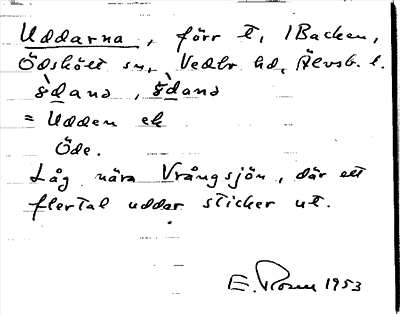 Uddarna, förr t. 1Backen,
Ödskölt sn, Vedbo hd, Älvsb. l.
= Udden el
Öde.
Låg nära Vrångsjön, där ett
flertal uddar sticker ut.
E. Rosen 1953